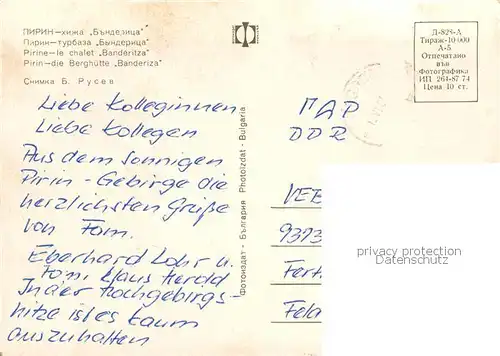 ПИРИН—хижа „Бъндезица"
Пирин—турбаза „Бындерица"
Pirine—le chalet „Banderitza"
Pirin—die Berghütte „Banderiza"
Снимка Б. Русев
Liebe Kolleginnen
Liebe Kollegen
Aus dem sonnigen
Pirin - Gebirge die
herzlichsten Grüße
von Fam.
Eberhard Lohr u.
Fam. Klaus Herold
In der Hochgebirgs-
hitze ist es kaum
auszuhalten
Фотоиздат - България Photoizdat - Bulgaria
Д-828-А
Тираж-10 000
А-5
Отпечатано
във
Фотографика
ИП 264-87 74
Цена 10 ст.
ГДР
DDR
VEB
9393
Fert
Feld
privacy protection
Datenschutz